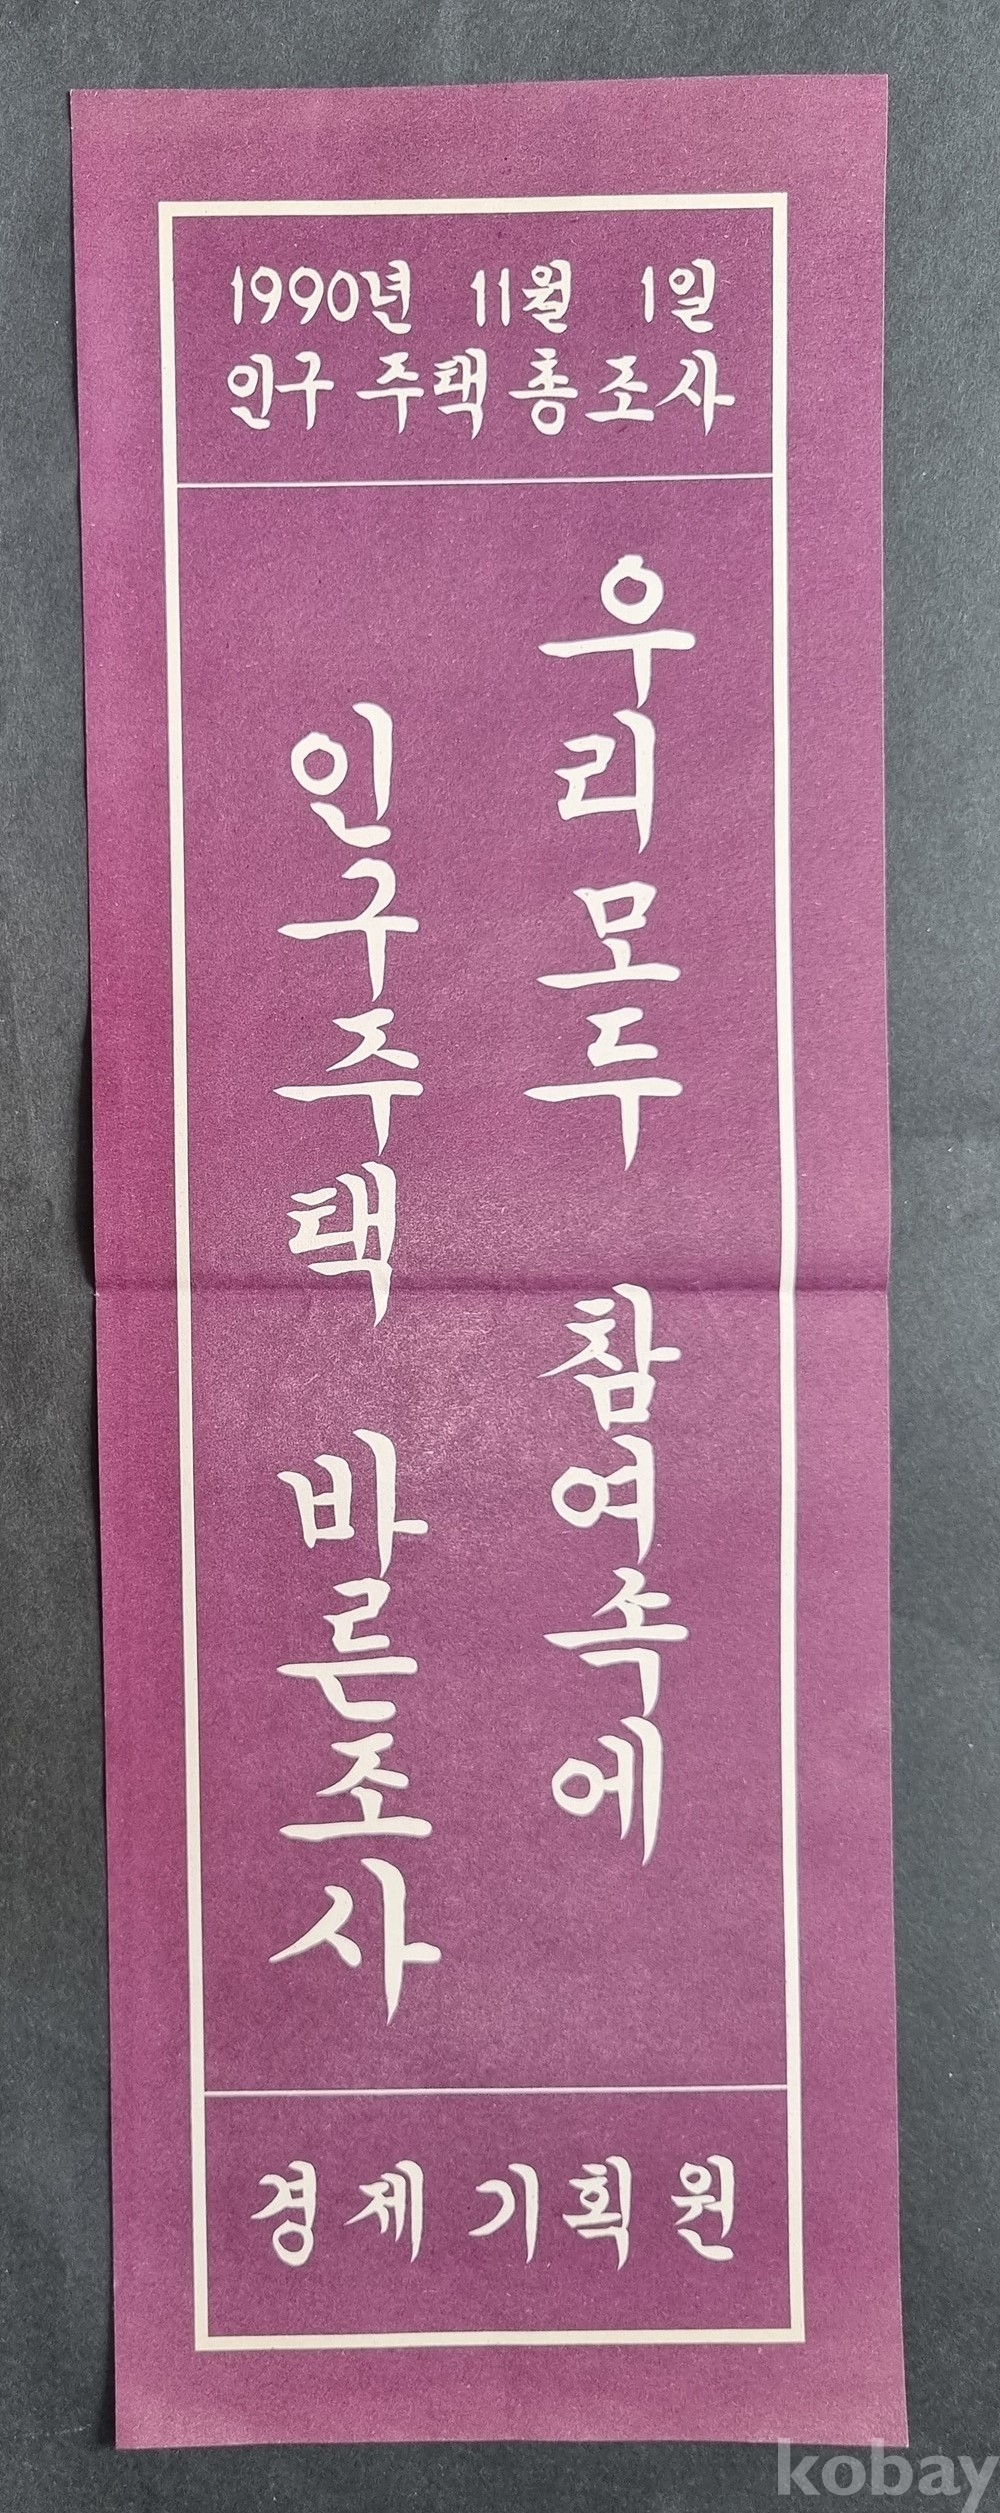 1990년 11월 1일
인구 주택 총조사
우리모두 참여속에
인구주택 바른조사
경제기획원
kobay